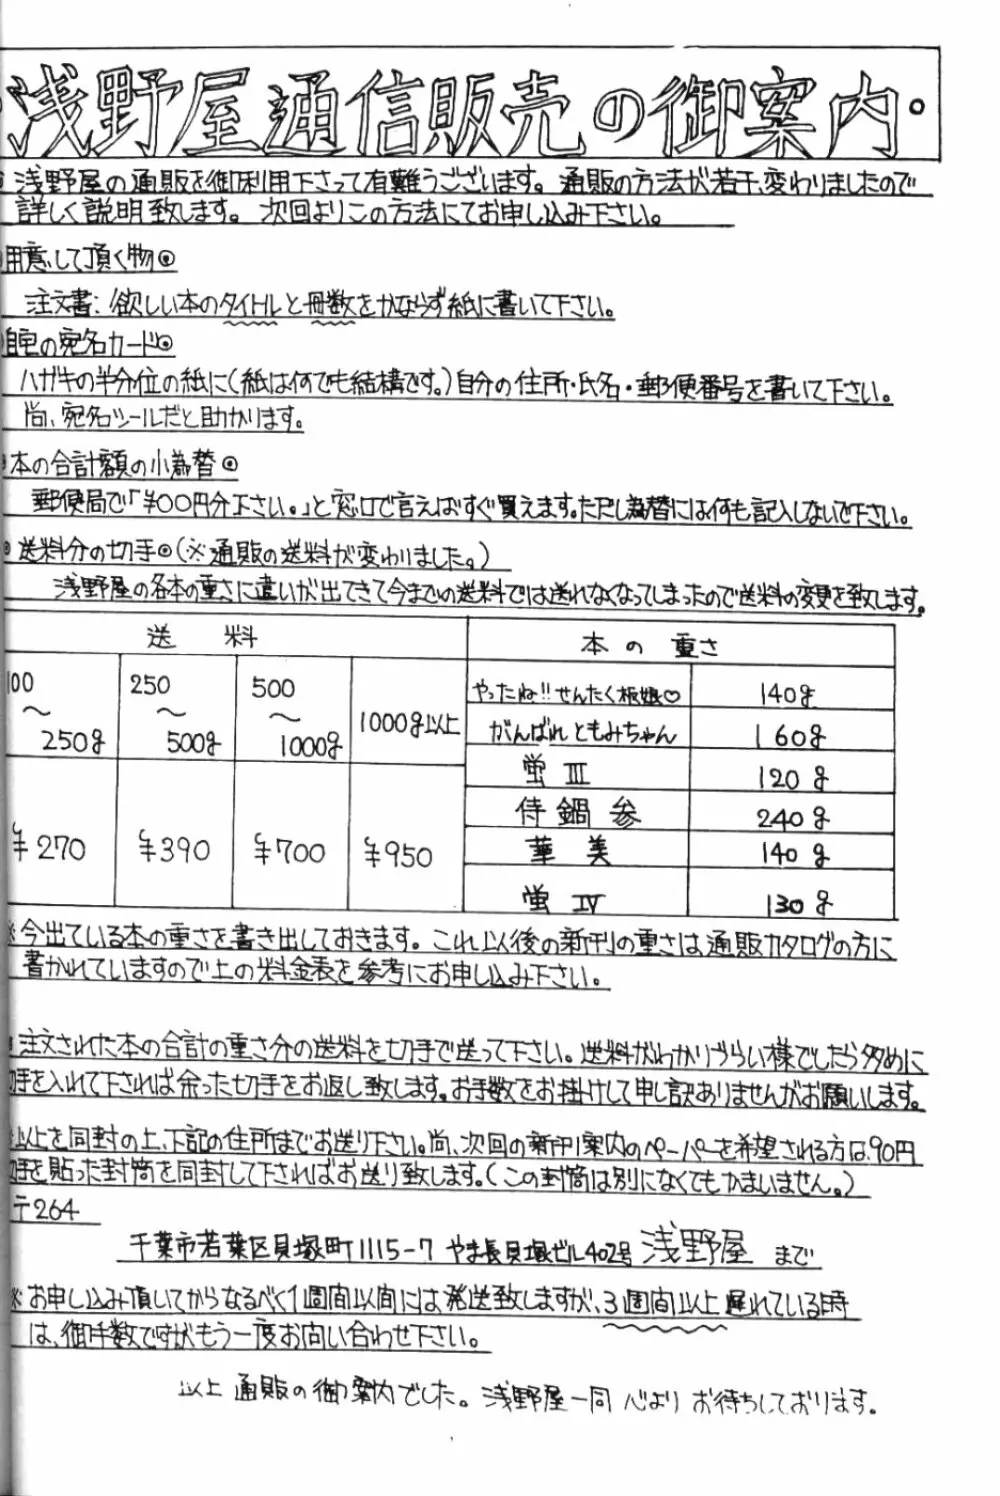 浅野屋通信販売の御案内・
浅野屋の通販を御利用下さって有難うございます。通販の方法が若干、変わりましたので
詳しく説明致します。次回よりこの方法にてお申し込み下さい。
用意して頂く物◎
注文書:欲しい本のタイトルと冊数をかならず紙に書いて下さい。
自宅の宛名カード◎
ハガキの半分位の紙に(紙は何でも結構です。)自分の住所・氏名・郵便番号を書いて下さい。
尚、宛名シールだと助かります。
本の合計額の小為替◎
郵便局で「¥○○円分下さい。」と窓口で言えばすぐ買えます。ただし為替には何も記入しないで下さい。
◎送料分の切手◎(※通販の送料が変わりました。)
浅野屋の各本の重さに違いが出てきて今までの送料では送れなくなってしまったので送料の変更を致します。
送料 本の重さ
100〜250g 250〜500g 500〜1000g 1000g以上
¥270 ¥390 ¥700 ¥950
やったね!!せんたく板娘♡ 140g
がんばれともみちゃん 160g
蛍III 120g
侍鍋参 240g
華美 140g
蛍IV 130g
※今出ている本の重さを書き出しておきます。これ以後の新刊の重さは通販カタログの方に
書かれていますので上の料金表を参考にお申し込み下さい。
注文された本の合計の重さ分の送料を切手で送って下さい。送料がわかりづらい様でしたら多めに
切手を入れて下されば余った切手をお返し致します。お手数をお掛けして申し訳ありませんがお願いします。
以上を同封の上、下記の住所までお送り下さい。尚、次回の新刊案内のペーパーを希望される方は90円
切手を貼った封筒を同封して下さればお送り致します。(この封筒は別になくてもかまいません。)
〒264
千葉市若葉区貝塚町1115-7 やま長貝塚ビル402号 浅野屋 まで
※お申し込み頂いてからなるべく1週間以間には発送致しますが、3週間以上遅れている時
は、御手数ですがもう一度お問い合わせ下さい。
以上 通販の御案内でした。浅野屋一同 心よりお待ちしております。